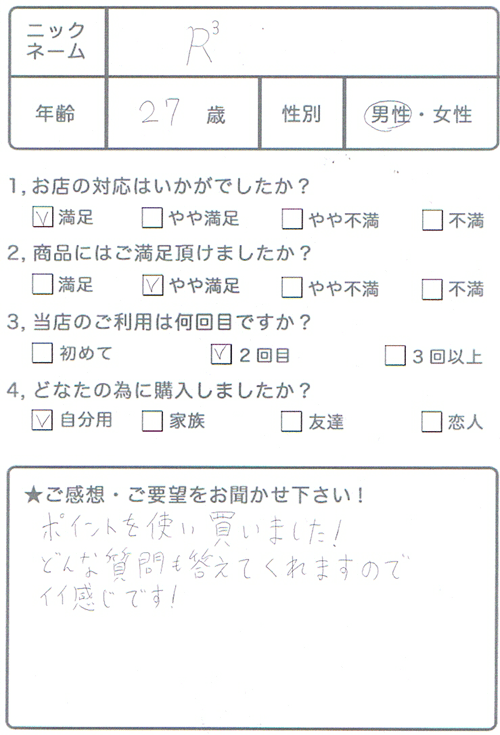 ニックネーム R³
年齢 27 歳 性別 男性・女性
1, お店の対応はいかがでしたか？
☑満足 □やや満足 □やや不満 □不満
2, 商品にはご満足頂けましたか？
□満足 ☑やや満足 □やや不満 □不満
3, 当店のご利用は何回目ですか？
□初めて ☑2回目 □3回以上
4, どなたの為に購入しましたか？
☑自分用 □家族 □友達 □恋人
★ご感想・ご要望をお聞かせ下さい！
ポイントを使い買いました！
どんな質問も答えてくれますので
イイ感じです！